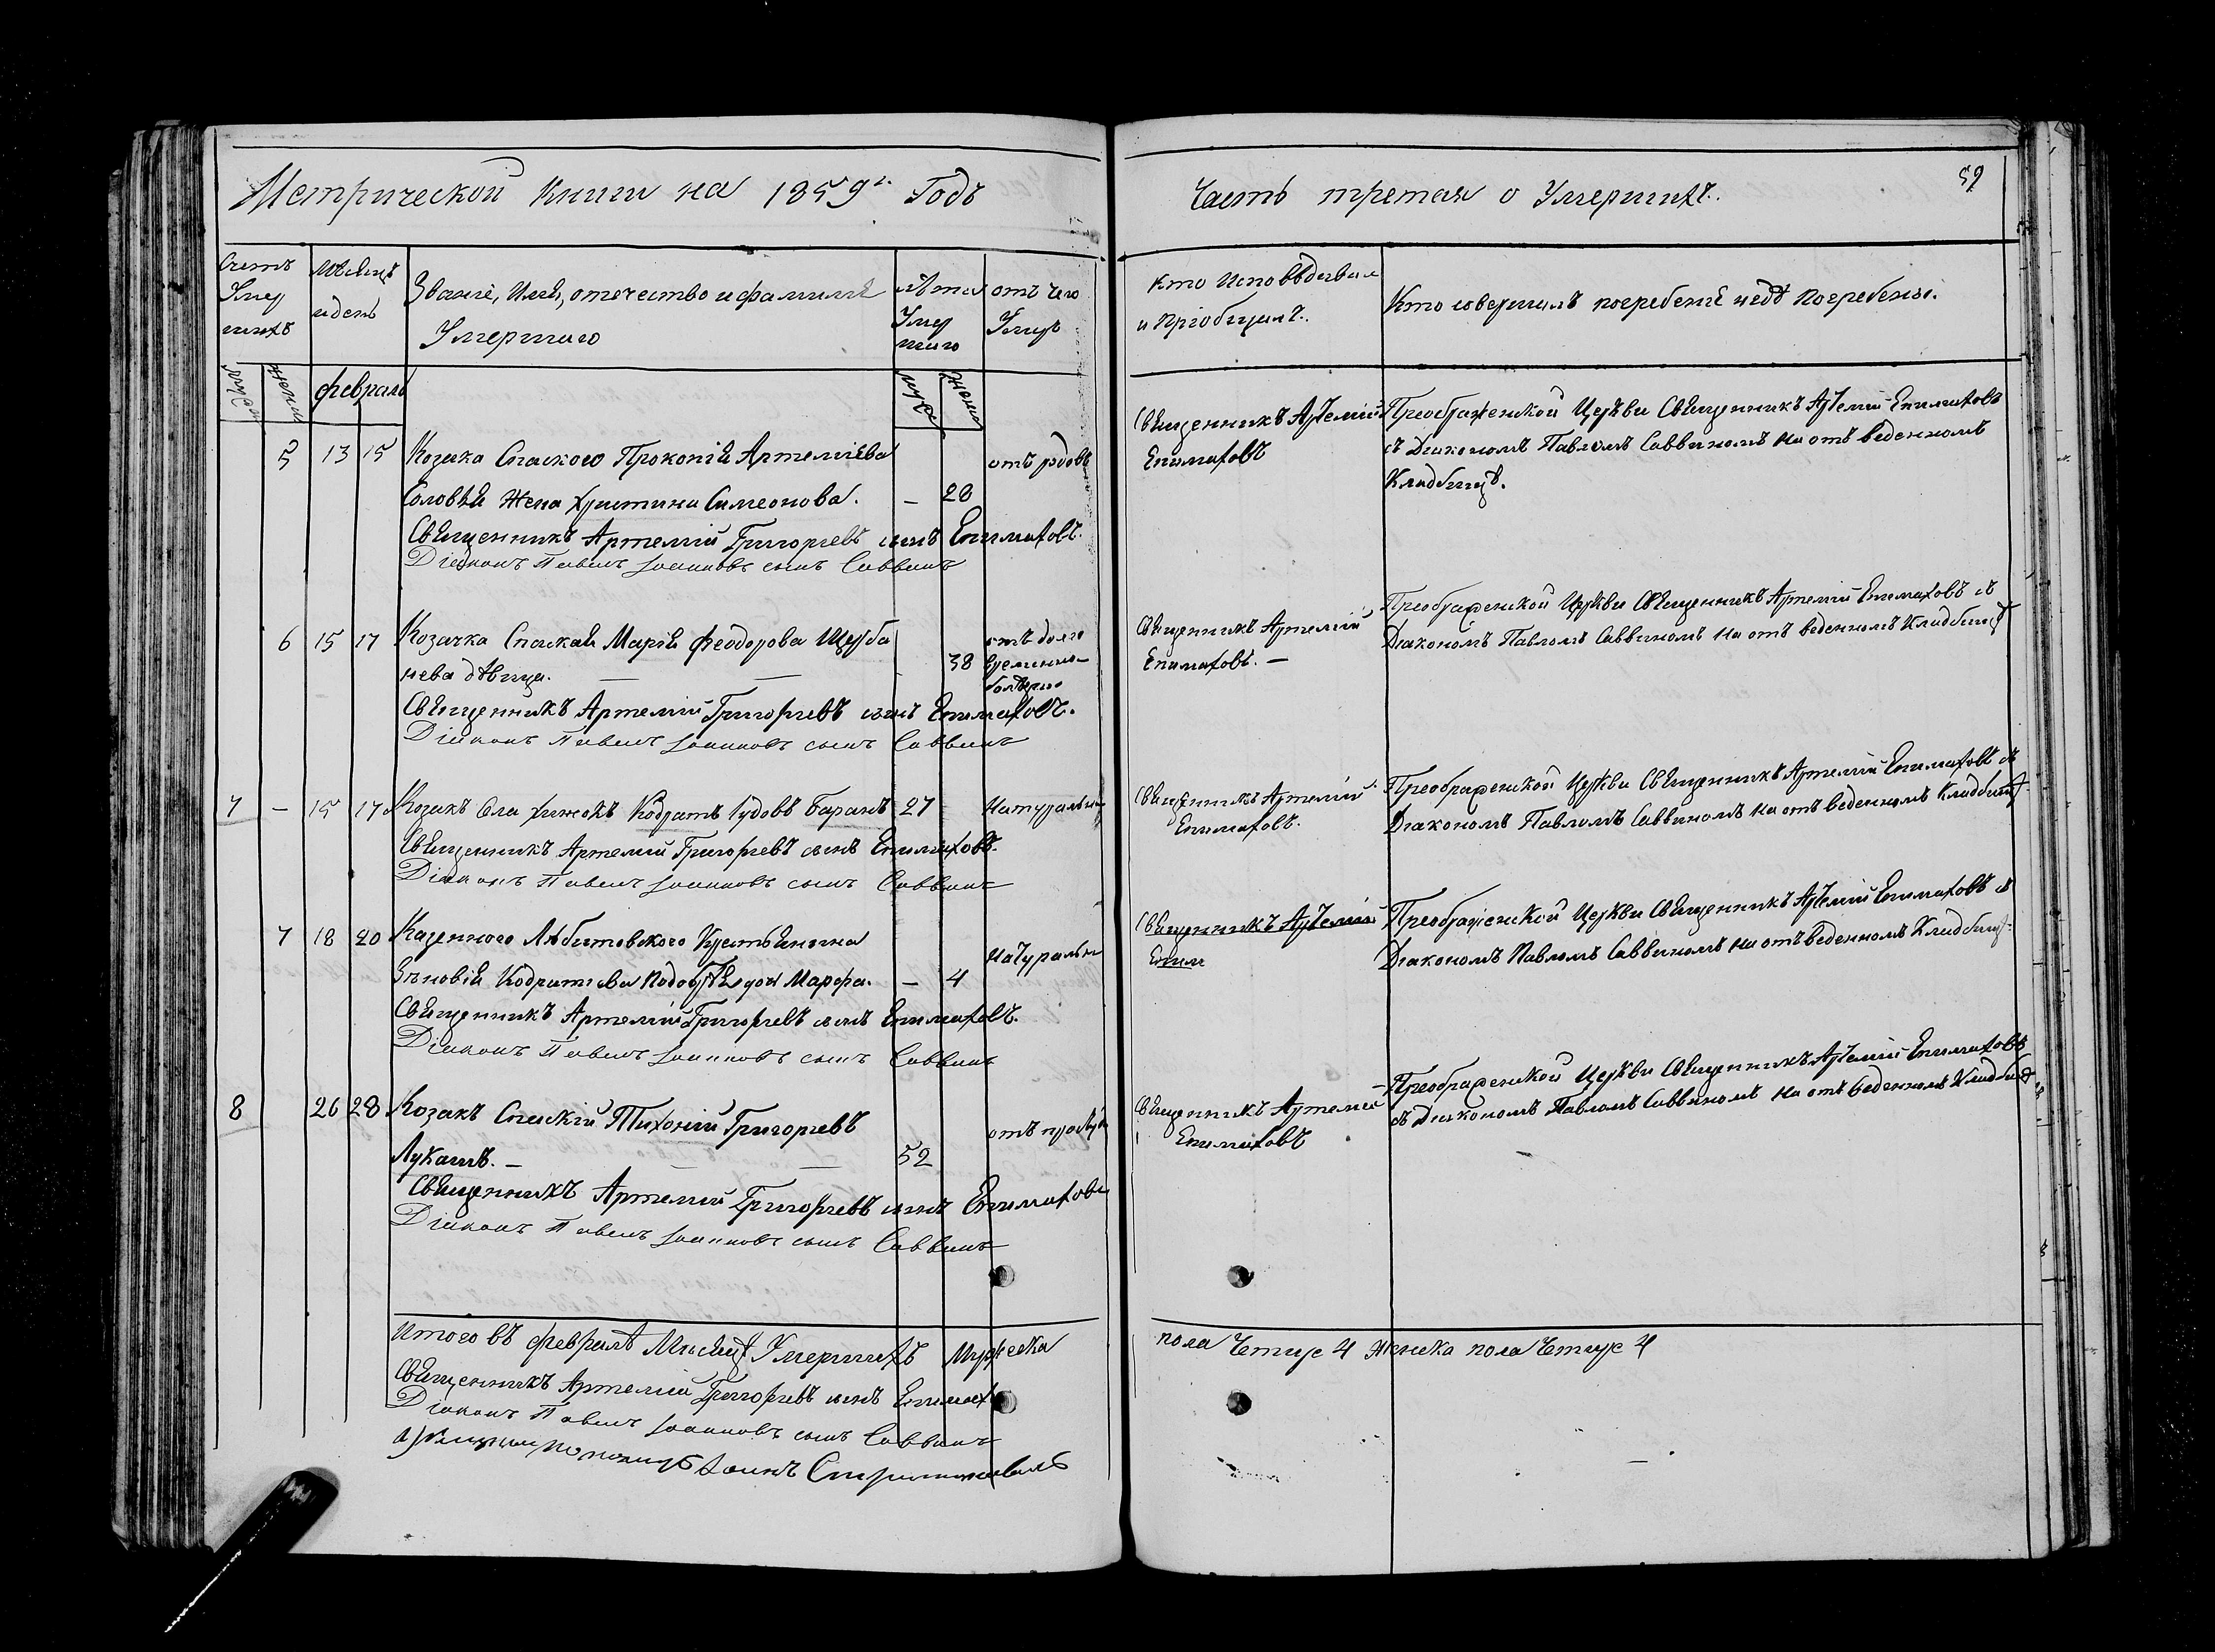 Метрической книги на 1859г. Годъ
Счетъ
Умер
шихъ
Мѣсяцъ
и день
Званіе, Имя, отечество и фамилія
Умершаго
лѣта
Умер
шаго
отъ чего
Умеръ
муж
женс
февраль
муж
женск
5 13 15 Козака Спаского Прокопія Артеміева отъ родовъ
Соловья Жена Христина Симеонова. — 28
Священникъ Артемій Григорьевъ сынъ Епимаховъ.
Діаконъ Павелъ Іоанновъ сынъ Саввинъ
6 15 17 Козачка Спаская Марія Феодорова Щерба 38 отъ долго
нева дѣвица. — — временно-
болѣзни
Священникъ Артемій Григорьевъ сынъ Епимаховъ.
Діаконъ Павелъ Іоанновъ сынъ Саввинъ
7 — 15 17 Козакъ Сла Кодратъ Баранъ 27 Натуральн
Священникъ Артемій Григорьевъ сынъ Епимаховъ.
Діаконъ Павелъ Іоанновъ сынъ Саввинъ
7 18 20 Казенного Любитовского Крестьянина Натуральн
Зѣновія Кодратіева дочь Марфа. — 4
Священникъ Артемій Григорьевъ сынъ Епимаховъ.
Діаконъ Павелъ Іоанновъ сынъ Саввинъ
8 26 28 Козакъ Спаскій Тихоній Григорьевъ отъ простуд
Лукашъ. — — — 52
Священникъ Артемій Григорьевъ сынъ Епимаховъ
Діаконъ Павелъ Іоанновъ сынъ Саввинъ
Итого въ февралѣ Мѣсяцѣ Умершихъ Мужеска
Священникъ Артемій Григорьевъ сынъ Епимах
Діаконъ Павелъ Іоанновъ сынъ Саввинъ
Іоаннъ
59
Часть третая о Умершихъ.
Кто Исповѣдывал
и пріобщилъ.
Кто совершилъ погребеніе и гдѣ Погребены.
Священникъ Артемій
Епимаховъ
Преображенской Церкви Священникъ Артемій Епимаховъ
съ Діакономъ Павломъ Саввиномъ на отъ веденномъ
Кладбищѣ.
Священникъ Артемій
Епимаховъ. —
Преображенской Церкви Священникъ Артемій Епимаховъ съ
Діакономъ Павломъ Саввиномъ на отъ веденномъ Кладбищѣ
Священникъ Артемій
Епимаховъ.
Преображенской Церкви Священникъ Артемій Епимаховъ съ
Діакономъ Павломъ Саввиномъ на отъ веденномъ Кладбищѣ
Священникъ Артемій
Епим
Преображенской Церкви Священникъ Артемій Епимаховъ съ
Діакономъ Павломъ Саввиномъ на отъ веденномъ Кладбищѣ
Священникъ Артемій
Епимаховъ
Преображенской Церкви Священникъ Артемій Епимаховъ
съ Діакономъ Павломъ Саввиномъ на отъ веденномъ Кладбищѣ
пола Четыре 4 Женска пола Четыре 4